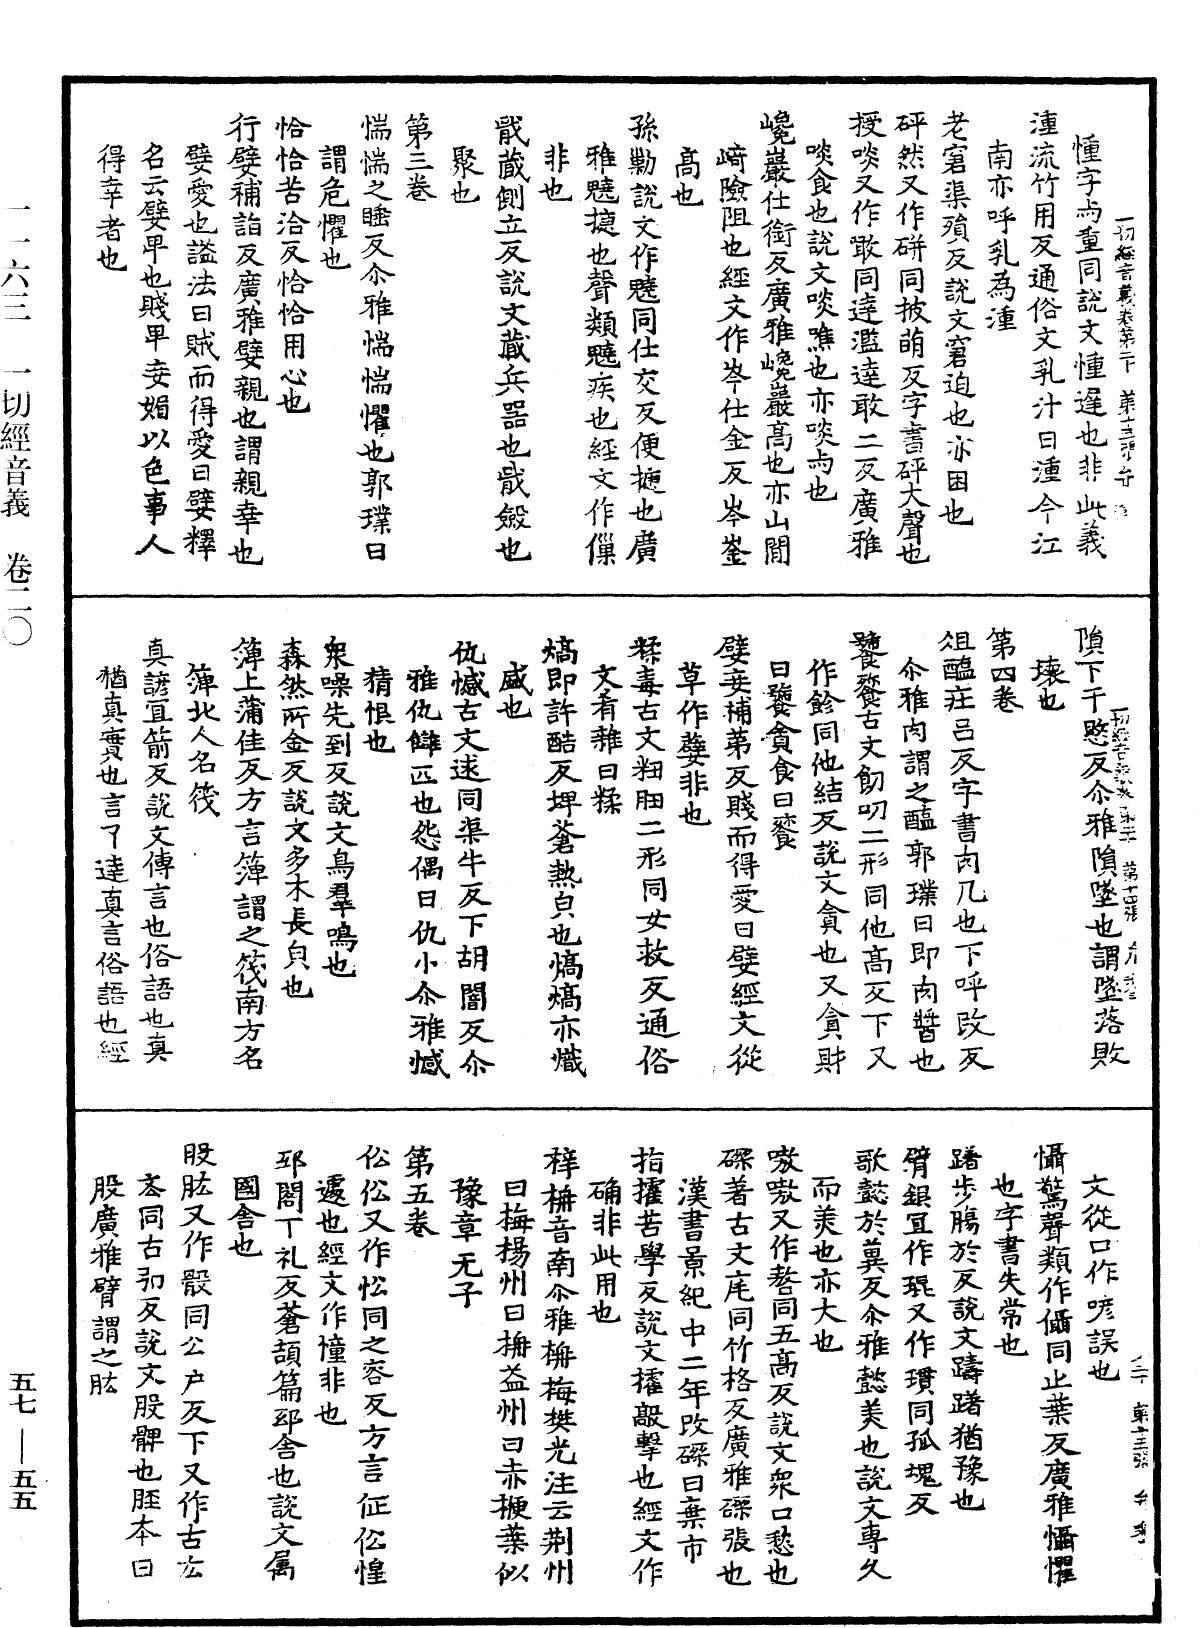 憧字与重同說文憧遲也非此義
湩流竹用反通俗文乳汁曰湩今江
南亦呼乳為湩
老窘渠殞反說文窘迫也亦困也
砰然又作硑同披萌反字書砰大聲也
授啖又作噉同達濫達敢二反廣雅
啖食也說文啖噍也亦啖与也
巉巖仕銜反廣雅巉巖高也亦山間
﨑險阻也經文作岑仕金反岑崟
高也
孫勦說文作魑同仕交反便摠也廣
雅魑摠也聲類魑疾也經文作僺
非也
戢藏側立反說文藏兵器也戢斂也
聚也
第三卷
惴惴之睡反尒雅惴惴懼也郭璞曰
謂危懼也
恰恰苦洽反恰恰用心也
行嬖補詣反廣雅嬖親也謂親幸也
嬖愛也謚法曰賊而得愛曰嬖釋
名云嬖卑也賤卑妾媚以色事人
得幸者也
隕下于愍反尒雅隕墜也謂墜落敗
壞也
第四卷
俎醢莊呂反字書肉几也下呼改反
尒雅肉謂之醢郭璞曰即肉醬也
饕餮古文飻叨二形同他高反下又
作飻同他結反說文貪也又貪財
曰饕貪食曰餮
嬖妾補第反賤而得愛曰嬖經文從
草作孽非也
糅毒古文粈䏔二形同女救反通俗
文肴雜曰糅
熇即許酷反埤蒼熱皃也熇熇亦熾
盛也
仇憾古文逑同渠牛反下胡闇反尒
雅仇讎匹也怨偶曰仇小尒雅憾
猜恨也
衆噪先到反說文鳥羣鳴也
森然所金反說文多木長皃也
簿上蒲佳反方言簿謂之筏南方名
簿北人名筏
真諺宜箭反說文傳言也俗語也真
猶真實也言了達真言俗語也經
文從口作喭誤也
懾驚聲類作㒤同止葉反廣雅懾懼
也字書失常也
躇步腸於反說文躊躇猶豫也
臂鋇冝作琨又作瑻同孤塊反
歌懿於兾反尒雅懿美也說文專久
而美也亦大也
嗷嗷又作嶅同五高反說文衆口愁也
磔著古文厇同竹格反廣雅磔張也
漢書景紀中二年改磔曰棄市
指搉苦學反說文搉敲擊也經文作
确非此用也
稡枏音南尒雅枏梅樊光注云荊州
曰梅楊州曰枏益州曰赤楩葉似
豫章无子
第五卷
伀伀又作忪同之容反方言佂伀惶
遽也經文作憧非也
邸閣丁礼反蒼頡篇邸舍也說文属
國舍也
股肱又作骰同公户反下又作古厷
㕁同古弘反說文股髀也胵本曰
股廣雅臂謂之肱
一一六三　一切經音義　卷二〇
五七—五五